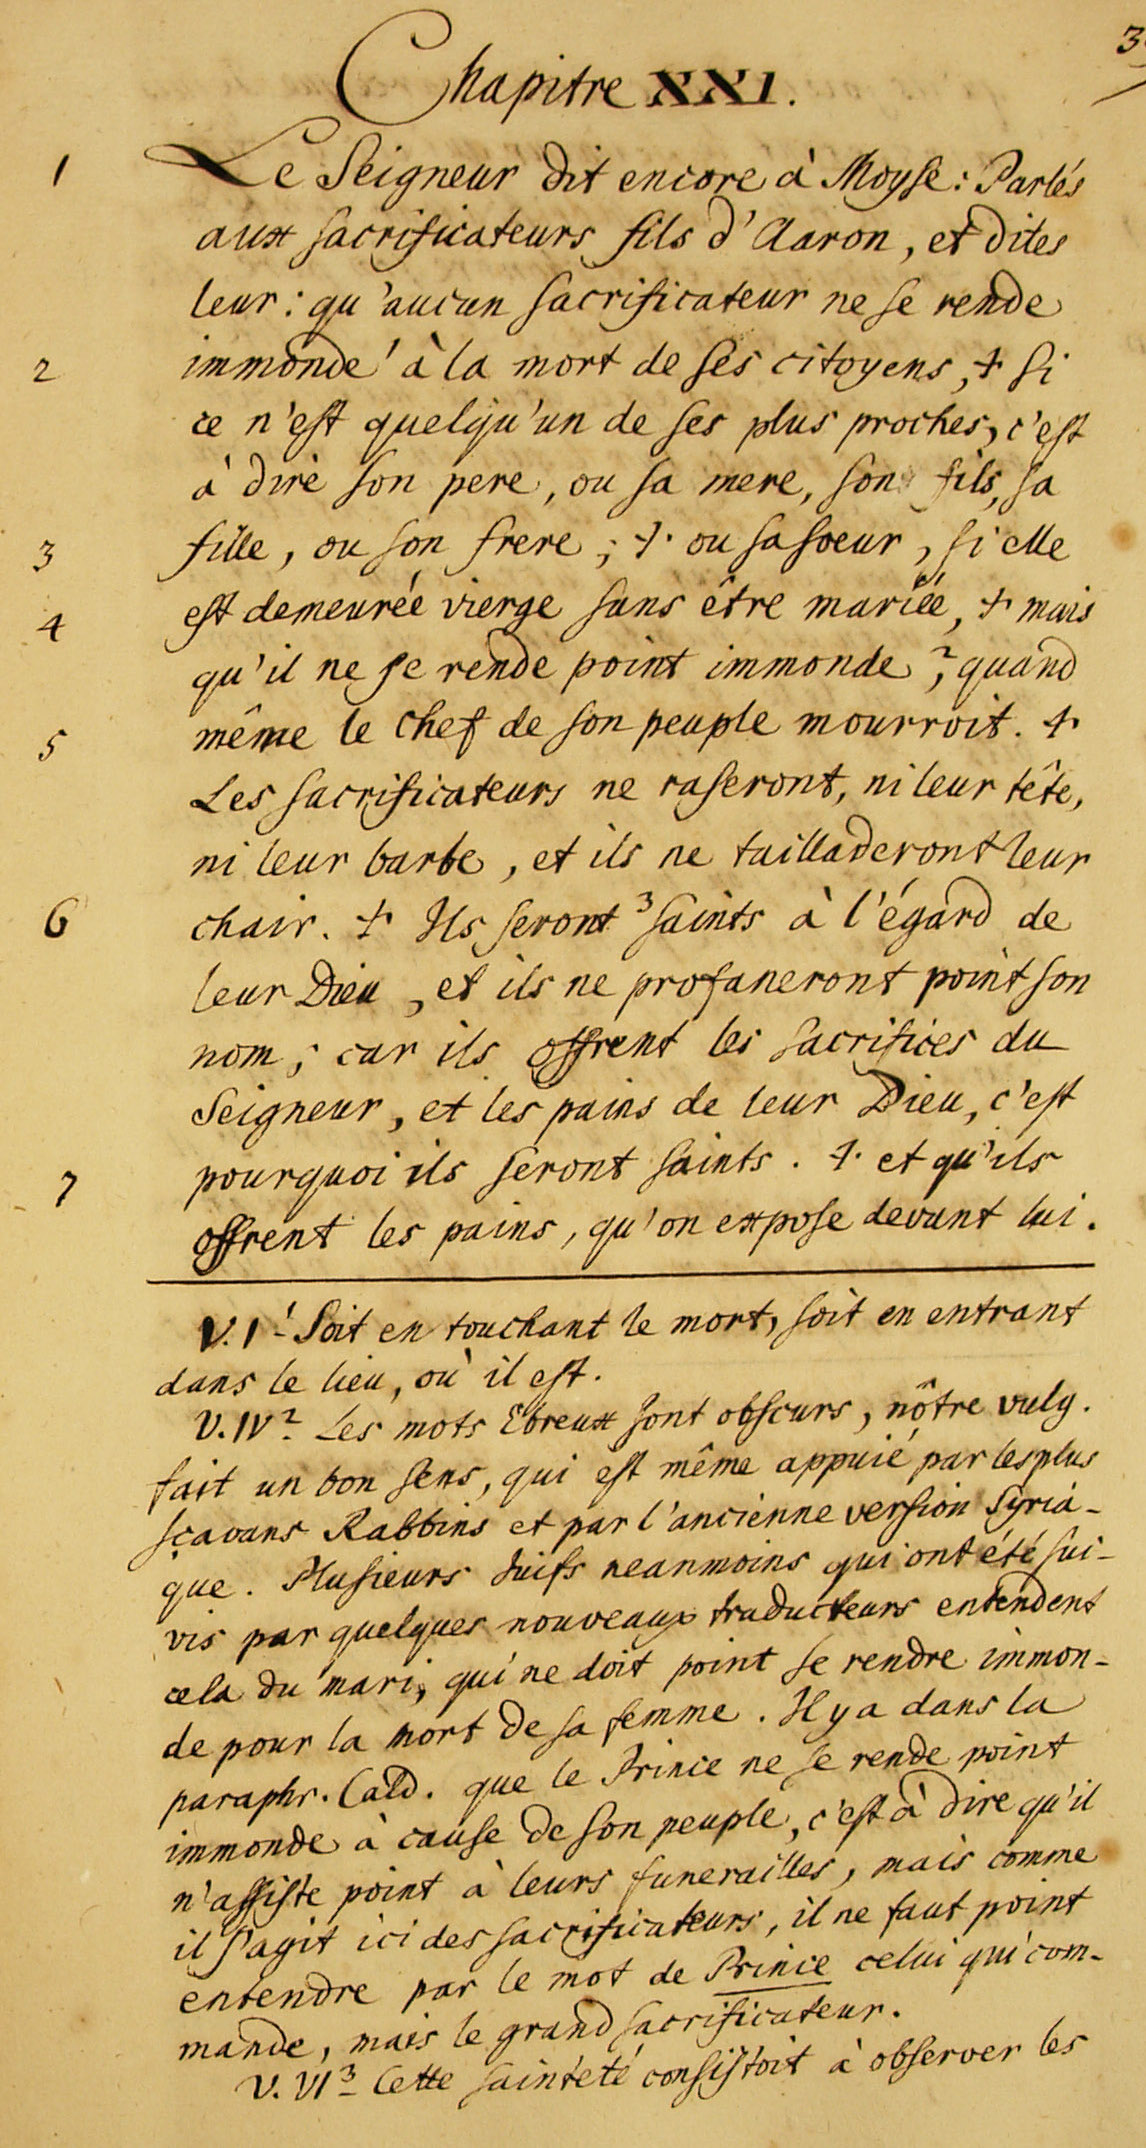 3
Chapitre XXI.
1 Le Seigneur dit encore à Moyse : Parlés
aux sacrificateurs fils d'Aaron, et dites
leur : qu'aucun sacrificateur ne se rende
2 immonde ¹ à la mort de ses citoyens, + si
ce n'est quelqu'un de ses plus proches, c'est
à dire son pere, ou sa mere, son fils, sa
3 fille, ou son frere ; + ou sa soeur, si elle
4 est demeurée vierge sans être mariée, + mais
qu'il ne se rende point immonde, ² quand
5 même le chef de son peuple mourroit. +
Les sacrificateurs ne raseront, ni leur tête,
ni leur barbe, et ils ne tailladeront leur
6 chair. + Ils seront ³ saints à l'égard de
leur Dieu, et ils ne profaneront point son
nom ; car ils offrent les sacrifices du
Seigneur, et les pains de leur Dieu, c'est
7 pourquoi ils seront saints. + et qu'ils
offrent les pains, qu'on expose devant lui.
V. I ¹ Soit en touchant le mort, soit en entrant
dans le lieu, où il est.
V. IV ² Les mots Ebreux sont obscurs, nôtre vulg.
fait un bon sens, qui est même appuié par les plus
sçavans Rabbins et par l'ancienne version Syria-
que. Plusieurs Juifs neanmoins qui ont été sui-
vis par quelques nouveaux traducteurs entendent
cela du mari, qui ne doit point se rendre immon-
de pour la mort de sa femme. Il y a dans la
paraphr. Cald. que le Prince ne se rende point
immonde à cause de son peuple, c'est à dire qu'il
n'assiste point à leurs funerailles, mais comme
il s'agit ici des sacrificateurs, il ne faut point
entendre par le mot de Prince celui qui com-
mande, mais le grand sacrificateur.
V. VI ³ Cette sainteté consistoit à observer les